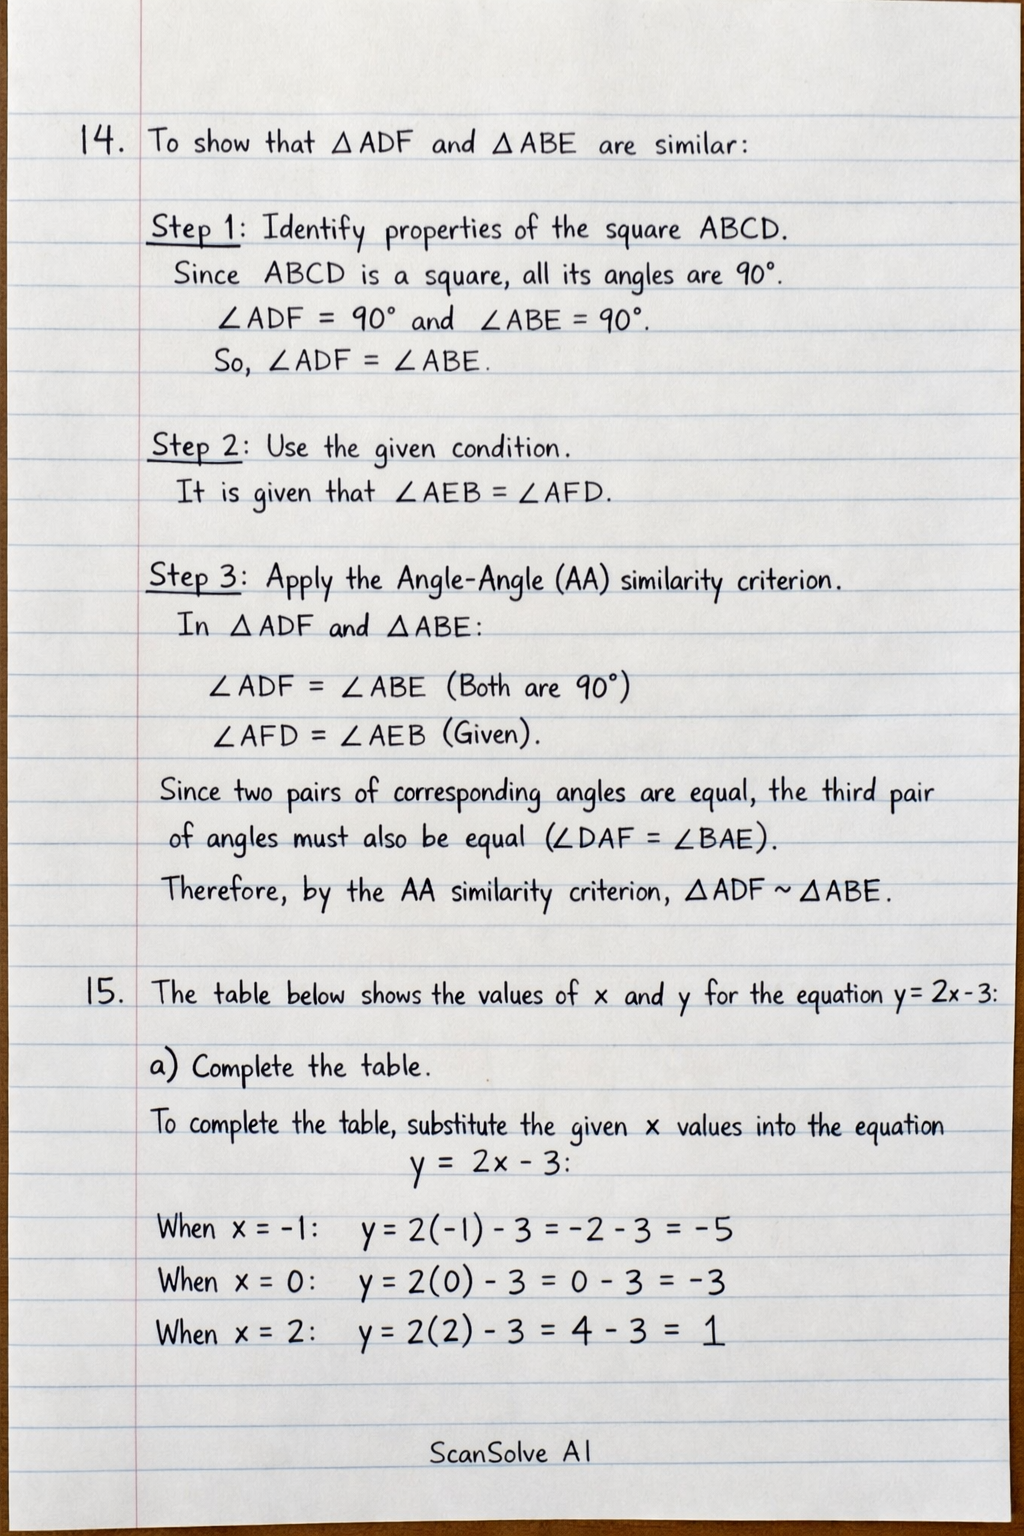 14. To show that △ADF and △ABE are similar:
Step 1: Identify properties of the square ABCD.
Since ABCD is a square, all its angles are 90°.
∠ADF = 90° and ∠ABE = 90°.
So, ∠ADF = ∠ABE.
Step 2: Use the given condition.
It is given that ∠AEB = ∠AFD.
Step 3: Apply the Angle-Angle (AA) similarity criterion.
In △ADF and △ABE:
∠ADF = ∠ABE (Both are 90°)
∠AFD = ∠AEB (Given).
Since two pairs of corresponding angles are equal, the third pair
of angles must also be equal (∠DAF = ∠BAE).
Therefore, by the AA similarity criterion, △ADF ~ △ABE.
15. The table below shows the values of x and y for the equation y = 2x - 3:
a) Complete the table.
To complete the table, substitute the given x values into the equation
y = 2x - 3:
When x = -1: y = 2(-1) - 3 = -2 - 3 = -5
When x = 0: y = 2(0) - 3 = 0 - 3 = -3
When x = 2: y = 2(2) - 3 = 4 - 3 = 1
ScanSolve AI